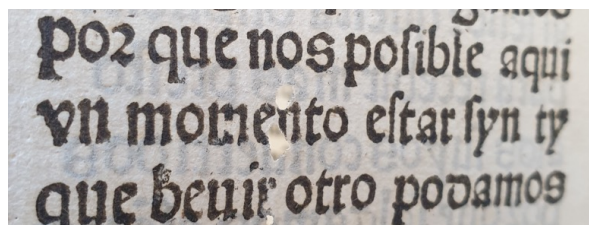 por que nos posible aqui
vn momento estar syn ty
que beuir otro podamos